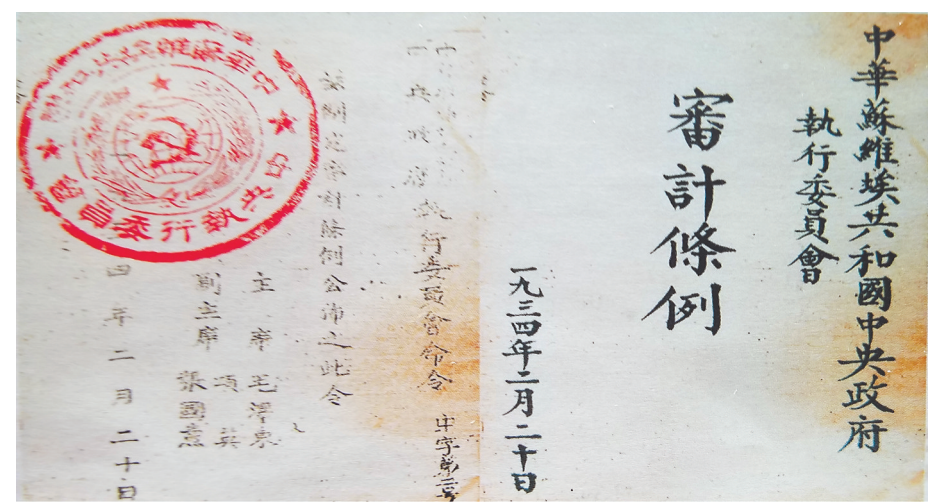 中華蘇維埃共和國中央政府
執行委員會
審計條例
一九三四年二月二十日
執行委員會命令
中字第三号
茲制定審計條例公佈之此令
主席 毛澤東
副主席 項英
張國燾
四年二月二十日
執行委員會